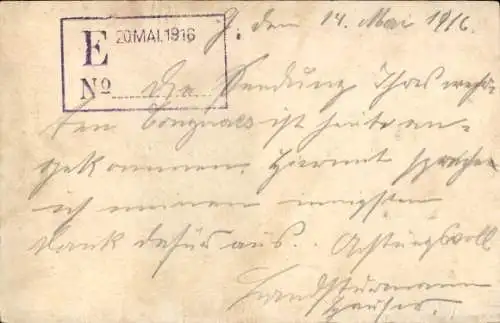 E 20.MAI.1916
No
den 14. Mai 1916.
Die Sendung Ihres wer-
ten Congnacs ist heute an-
gekommen. Hiermit spreche
ich meinen innigsten
Dank dafür aus. Achtungsvoll
Landsturmmann